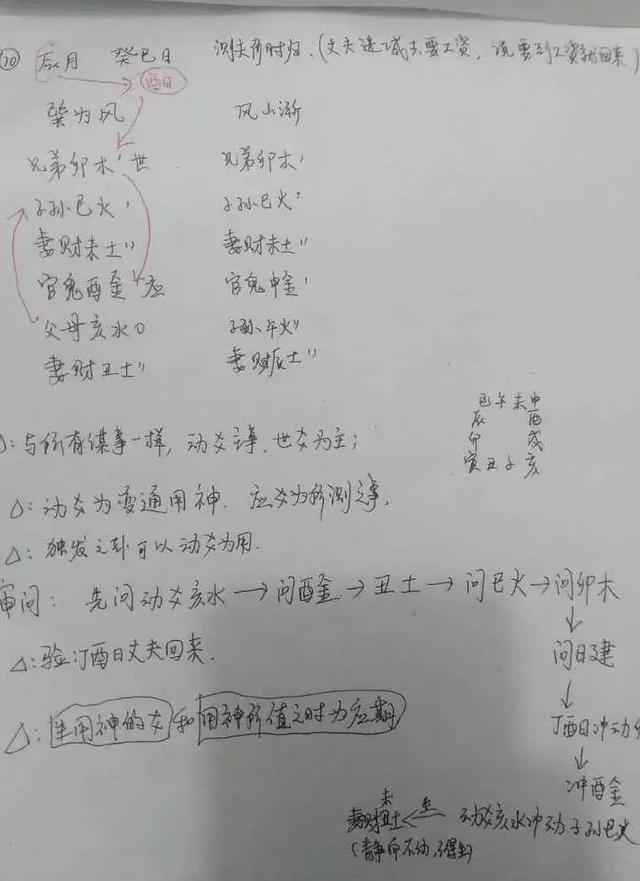 ⑩ 辰月 癸巳日 测夫何时归:(丈夫进城去要工资,说要到工资就回来)
巽为风 风山渐
兄弟卯木' 世 兄弟卯木'
子孙巳火' 子孙巳火'
妻财未土'' 妻财未土''
官鬼酉金' 应 官鬼申金'
父母亥水O 子孙午火''
妻财丑土'' 妻财辰土''
巳午未申
辰 酉
卯 戌
寅丑子亥
△:与所有谋事一样,动爻主事,世爻为主;
△:动爻为变通用神. 应爻为所测之事.
△:独发之卦可以动爻为用.
审问: 先问动爻亥水→问酉金→丑土→问巳火→问卯木
↓
问日建
↓
△:验:丁酉日丈夫回来.
丁酉日冲动
↓
冲酉金
△:生用神的爻和用神所值之时为应期
妻财丑土 未 ← 生 动爻亥水冲动子孙巳火
(静而不伤,得生)